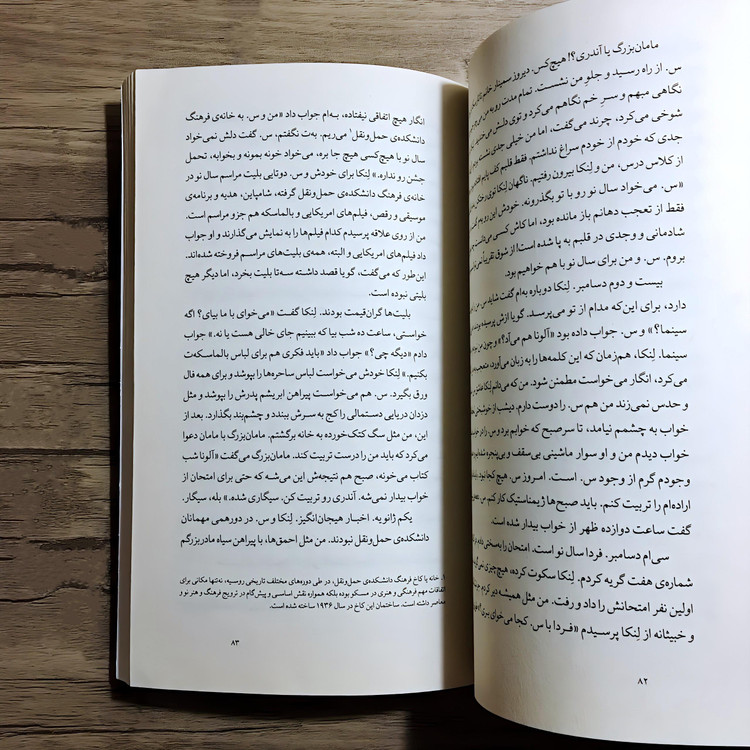 مامان‌بزرگ یا آندری؟! هیچ‌کس. دیروز سمینار
س. از راه رسید و جلو من نشست. تمام مدت رو به من
نگاهی مبهم و سر خم نگاهم می‌کرد و توی دلش
شوخی می‌کرد، چرند می‌گفت، اما من خیلی جدی نشسته
جدی که خودم از خودم سراغ نداشتم. فقط قلبم کف پایم
از کلاس درس، من و لِنکا بیرون رفتیم. ناگهان لِنکا توی
«س. می‌خواد سال نو رو با تو بگذرونه. خودش این رو بهم
فقط از تعجب دهانم باز مانده بود، اما کاش کسی می‌دانست
شادمانی و وجدی در قلبم به پا شده است! از شوق تقریباً
بروم. س. و من برای سال نو با هم خواهیم بود.
بیست و دوم دسامبر. لِنکا دوباره به‌ام گفت شاید س.
دارد، برای این‌که مدام از تو می‌پرسد. گویا ازش پرسیده
سینما؟» و س. جواب داده بود «آلونا هم می‌آد؟» و چون
سینما. لِنکا، هم‌زمان که این کلمه‌ها را به زبان می‌آورد،
می‌کرد، انگار می‌خواست مطمئن شود. من که می‌دانم لِنکا
و حدس نمی‌زند من هم س. را دوست دارم. دیشب از خوشبختی
خواب به چشمم نیامد، تا سر صبح که خوابم برد و س. را در
خواب دیدم من و او سوار ماشینی بی‌سقف و بی‌پنجره
وجودم گرم از وجود س. است. امروز س. هیچ کجا نبود.
اراده‌ام را تربیت کنم. باید صبح‌ها ژیمناستیک کار کنم.
گفت ساعت دوازده ظهر از خواب بیدار شده است.
سی‌ام دسامبر. فردا سال نو است. امتحان را به‌سختی دادم
شماره‌ی هفت گریه کردم. لِنکا سکوت کرده، هیچ‌چیزی
اولین نفر امتحانش را داد و رفت. من مثل همیشه دیر کردم.
و خبیثانه از لِنکا پرسیدم «فردا با س. کجا می‌خوای بری؟»
۸۲
انگار هیچ اتفاقی نیفتاده، به‌ام جواب داد «من و س. به خانه‌ی فرهنگ
دانشکده‌ی حمل‌ونقل۱ می‌ریم. به‌ت نگفتم، س. گفت دلش نمی‌خواد
سال نو با هیچ‌کسی هیچ جا بره، می‌خواد خونه بمونه و بخوابه، تحمل
جشن رو نداره.» لِنکا برای خودش و س. دوتایی بلیت مراسم سال نو در
خانه‌ی فرهنگ دانشکده‌ی حمل‌ونقل گرفته، شامپاین، هدیه و برنامه‌ی
موسیقی و رقص، فیلم‌های امریکایی و بالماسکه هم جزو مراسم است.
من از روی علاقه پرسیدم کدام فیلم‌ها را به نمایش می‌گذارند و او جواب
داد فیلم‌های امریکایی و البته، همه‌ی بلیت‌های مراسم فروخته شده‌اند.
این‌طور که می‌گفت، گویا قصد داشته سه‌تا بلیت بخرد، اما دیگر هیچ
بلیتی نبوده است.
بلیت‌ها گران‌قیمت بودند. لِنکا گفت «می‌خوای با ما بیای؟ اگه
خواستی، ساعت ده شب بیا که ببینیم جای خالی هست یا نه.» جواب
دادم «دیگه چی؟» جواب داد «باید فکری هم برای لباس بالماسکه‌ت
بکنیم.» لِنکا خودش می‌خواست لباس ساحره‌ها را بپوشد و برای همه فال
ورق بگیرد. س. هم می‌خواست پیراهن ابریشم پدرش را بپوشد و مثل
دزدان دریایی دستمالی را کج به سرش ببندد و چشم‌بند بگذارد. بعد از
این، من مثل سگ کتک‌خورده به خانه برگشتم. مامان‌بزرگ با مامان دعوا
می‌کرد که باید من را درست تربیت کند. مامان‌بزرگ می‌گفت «آلونا شب
کتاب می‌خونه، صبح هم نتیجه‌ش این می‌شه که حتی برای امتحان از
خواب بیدار نمی‌شه. آندری رو تربیت کن. سیگاری شده.» بله، سیگار.
یکم ژانویه. اخبار هیجان‌انگیز. لِنکا و س. در دورهمی مهمانان
دانشکده‌ی حمل‌ونقل نبودند. من مثل احمق‌ها، با پیراهن سیاه مادربزرگم
۱. خانه یا کاخ فرهنگ دانشکده‌ی حمل‌ونقل، در طی دوره‌های مختلف تاریخی روسیه، نه‌تنها مکانی برای
اتفاقات مهم فرهنگی و هنری در مسکو بوده بلکه همواره نقش اساسی و پیش‌گام در ترویج فرهنگ و هنر نو و
معاصر داشته است. ساختمان این کاخ در سال ۱۹۳۶ ساخته شده است.
۸۳